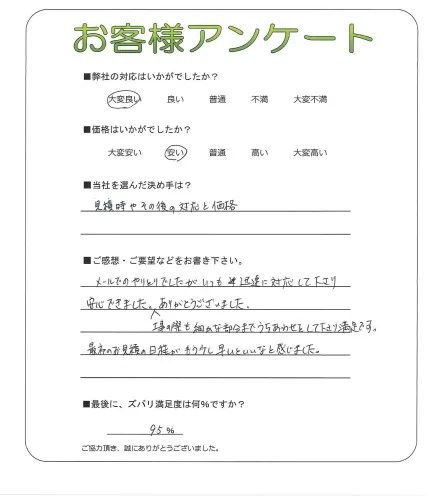 お客様アンケート
■弊社の対応はいかがでしたか？
大変良い 良い 普通 不満 大変不満
■価格はいかがでしたか？
大変安い 安い 普通 高い 大変高い
■当社を選んだ決め手は？
見積時やその後の対応と価格
■ご感想・ご要望などをお書き下さい。
メールでのやりとりでしたが いつも 迅速に対応して下さり
安心できました。ありがとうございました。
工事の際も細かな部分までうちあわせをして下さり満足です。
最初のお見積の日程がもう少し早いといいなと感じました。
■最後に、ズバリ満足度は何％ですか？
95％
ご協力頂き、誠にありがとうございました。